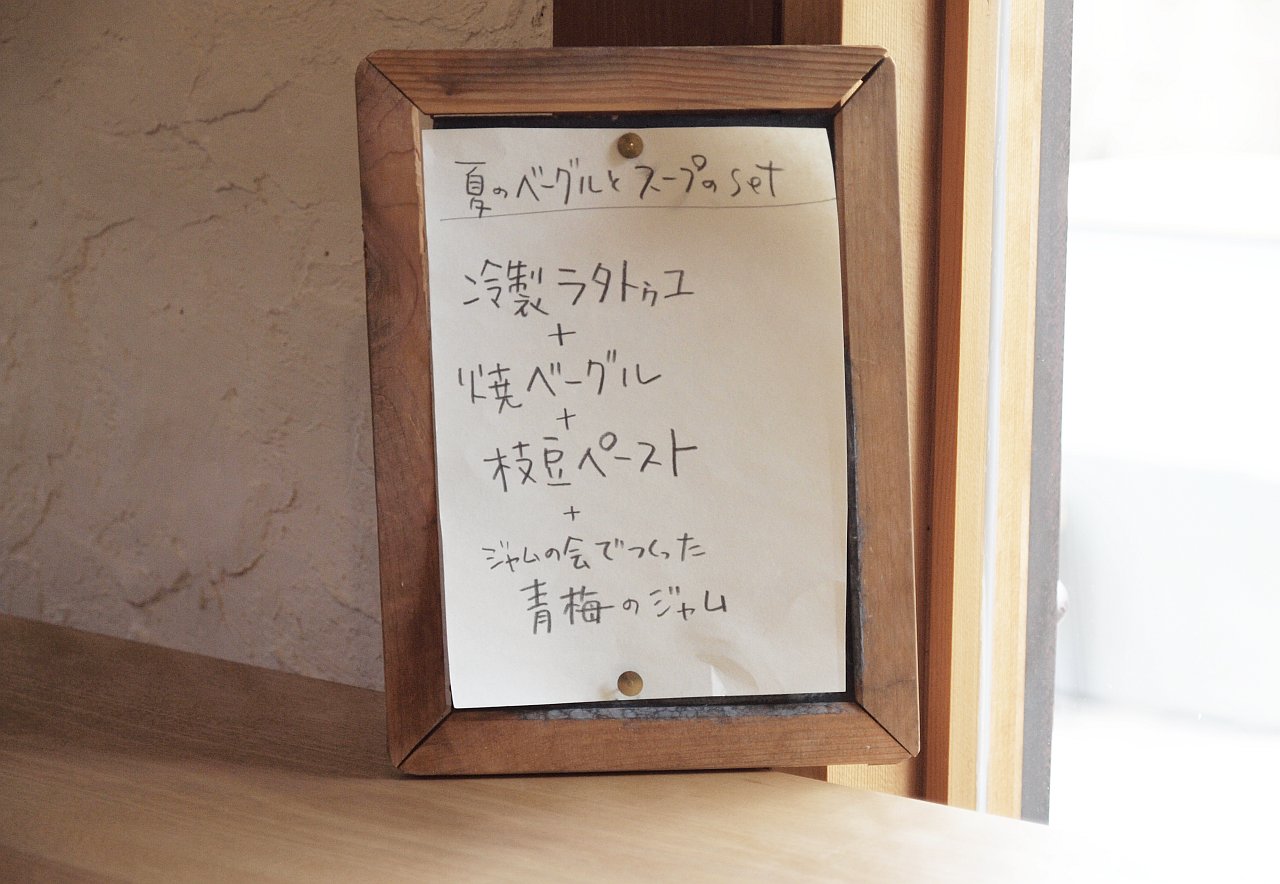 夏のベーグルとスープのset
冷製ラタトゥユ
+
焼ベーグル
+
枝豆ペースト
+
ジャムの会でつくった
青梅のジャム